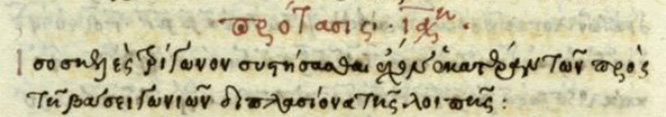 πρότασις · ιαη ·
Ισοσκελὲς τρίγωνον συστήσασθαι ἔχον ἑκατέραν τῶν πρὸς
τῇ βάσει γωνιῶν διπλασίονα τῆς λοιπῆς :